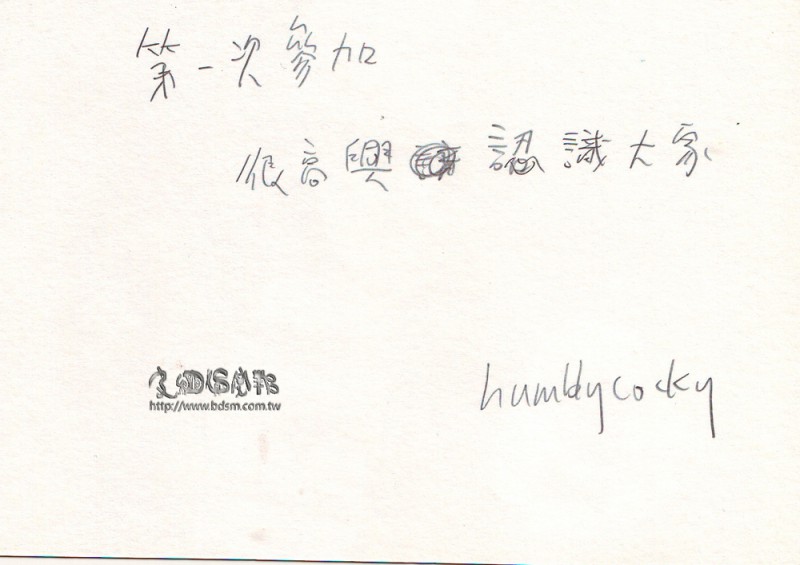 第一次參加
很高興認識大家
humblycocky
http://www.bdsm.com.tw